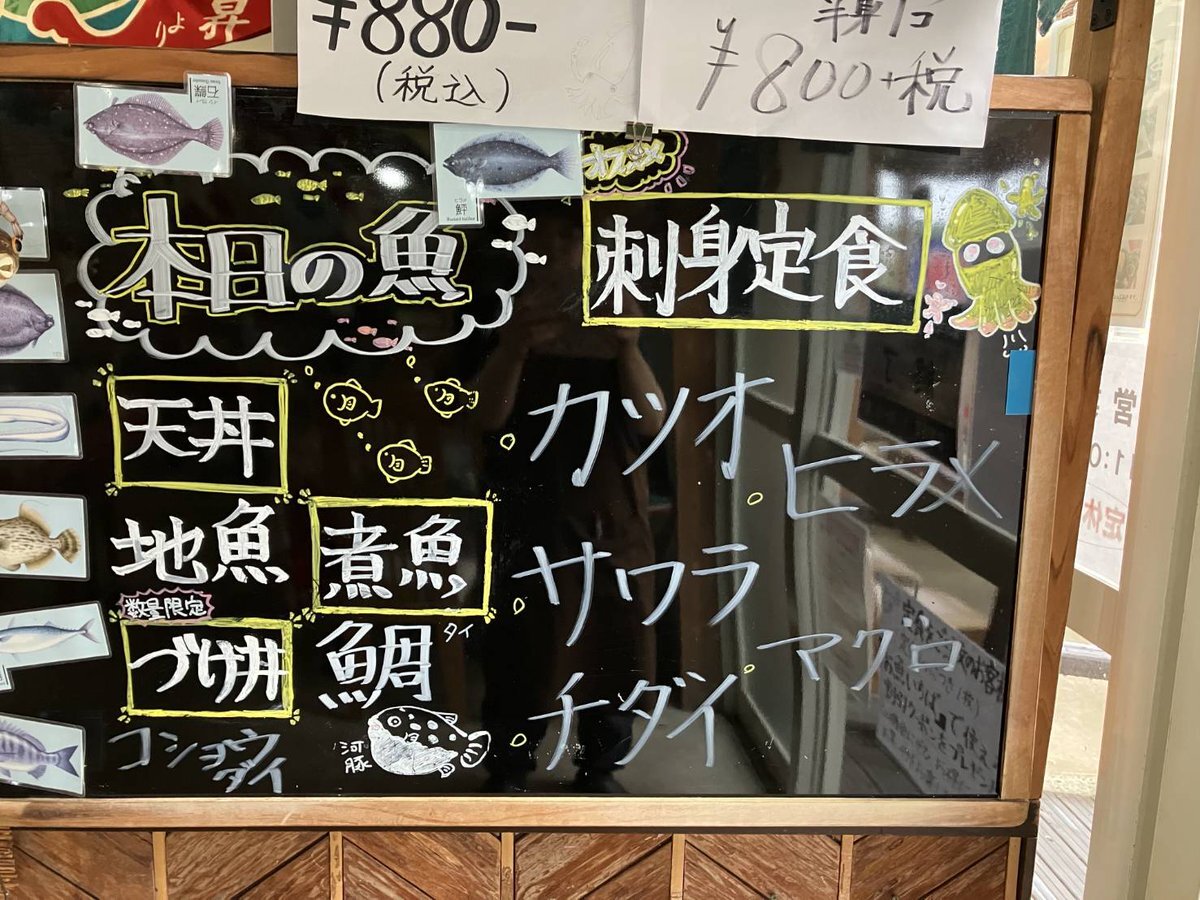 昇
より
¥880-
(税込)
¥800+税
石鰈
鮃
オススメ
本日の魚
刺身定食
天丼
地魚
煮魚
鯛
タイ
数量限定
づけ丼
コショウ
ダイ
河豚
カツオ
ヒラメ
サワラ
マグロ
チダイ
営
定休